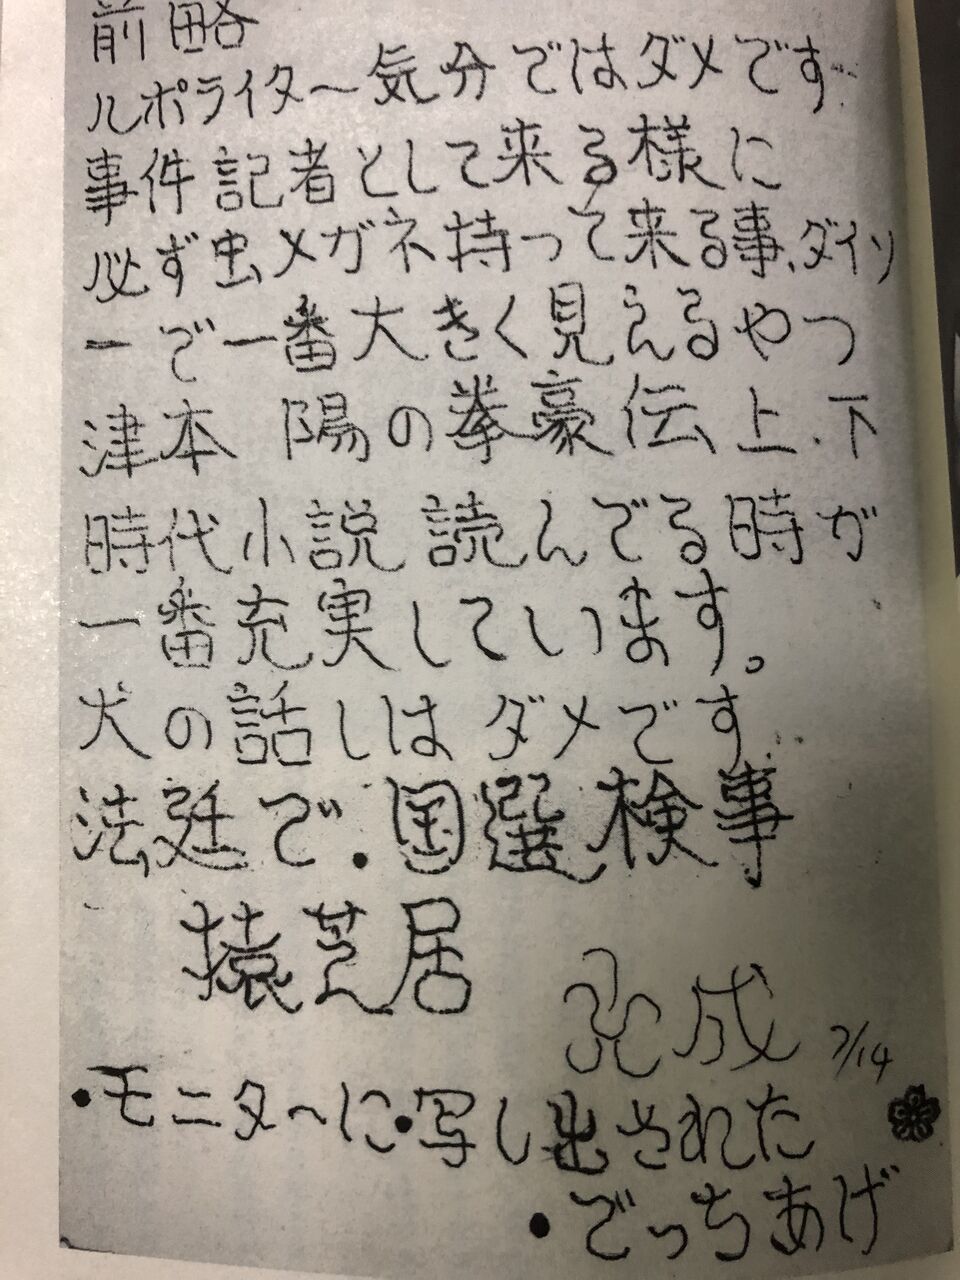 前略
ルポライター気分ではダメです
事件記者として来る様に
必ず虫メガネ持って来る事、ダイソ
ーで一番大きく見えるやつ
津本 陽の拳豪伝 上.下
時代小説 読んでる時が
一番充実しています。
犬の話しはダメです
法廷で・国選検事
猿芝居
完成 7/14
・モニターに・写し出された
・でっちあげ